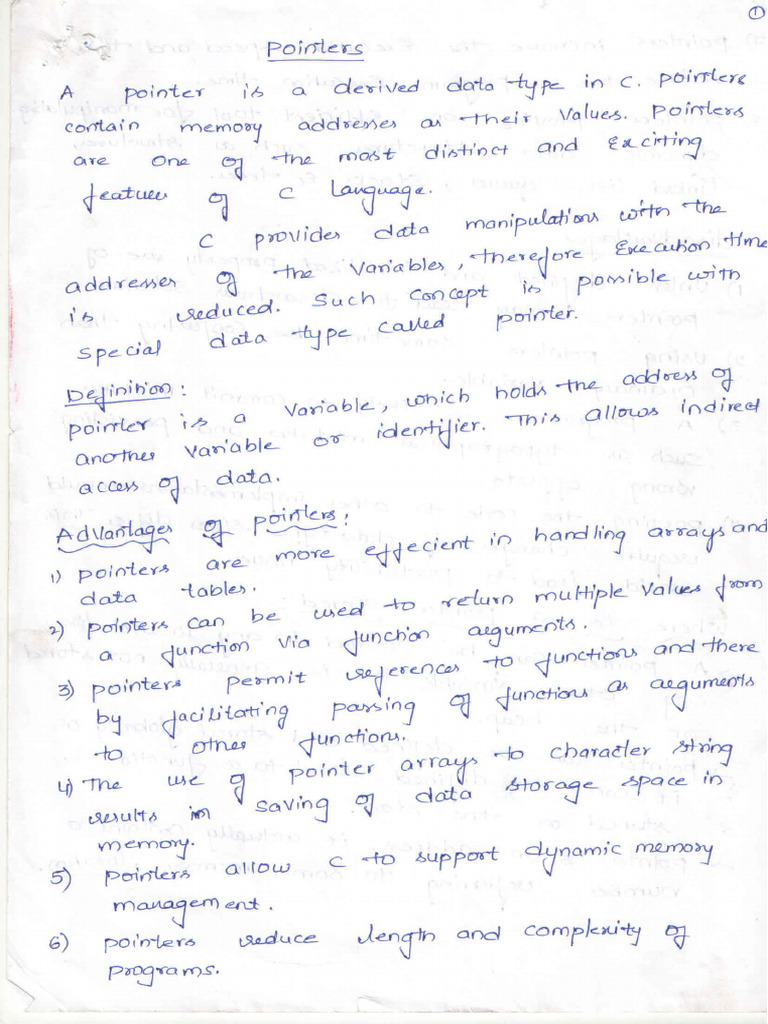 1
Pointers
A pointer is a derived data type in C. pointers
contain memory addresses as their Values. pointers
are one of the most distinct and Exciting
features of C Language.
C provides data manipulations with the
addresses of the Variables, therefore Execution time
is reduced. Such concept is possible with
special data type called pointer.
Definition:
pointer is a Variable, which holds the address of
another variable or identifier. This allows indirect
access of data.
Advantages of pointers:
1) pointers are more effecient in handling arrays and
data tables.
2) pointers can be used to return multiple values from
a function via function arguments.
3) pointers permit references to functions and there
by facilitating parsing of functions as arguments
to other functions.
4) The use of pointer arrays to character string
results in saving of data storage space in
memory.
5) pointers allow C to support dynamic memory
management.
6) pointers reduce length and complexity of
programs.